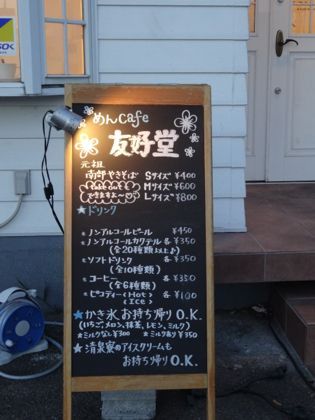 SOK
めんcafe
友好堂
元祖
南部やきそば Sサイズ ¥400
できますよ～♡ Mサイズ ¥600
Lサイズ ¥800
★ドリンク
*ノンアルコールビール ¥450
*ノンアルコールカクテル 各¥350
(全20種類以上♪)
*ソフトドリンク 各¥350
(全10種類)
*コーヒー 各¥350
*ピュティー(Hot) 各¥100
Ice
★かき氷お持ち帰りO.K.
(いちご、メロン、抹茶、レモン、ミルク)
★ミルクなし¥300 ★ミルクあり¥350
★清泉寮のアイスクリームも
お持ち帰りO.K.